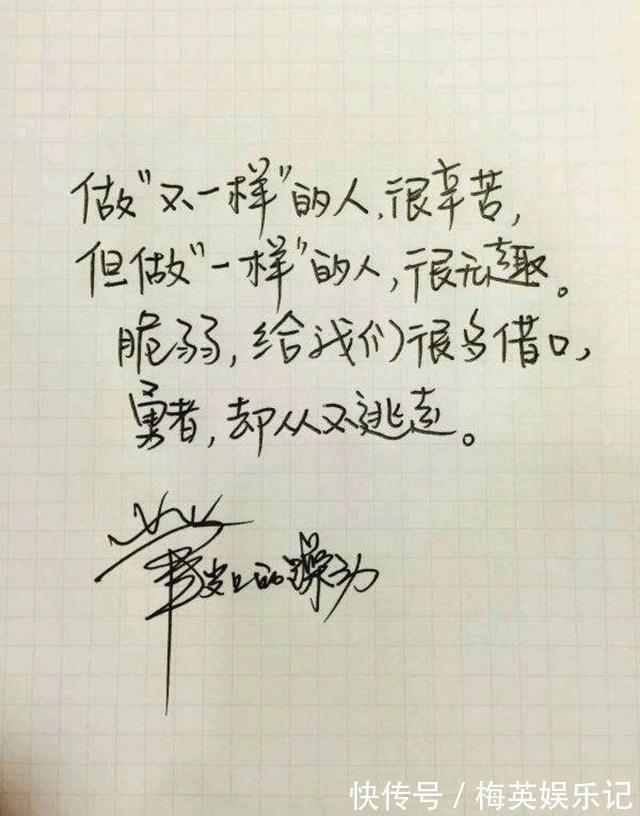 做"不一样"的人,很辛苦,
但做"一样"的人,很无趣。
脆弱,给我们很多借口,
勇者,却从不逃走。
的躁动
快传号/梅英娱乐记